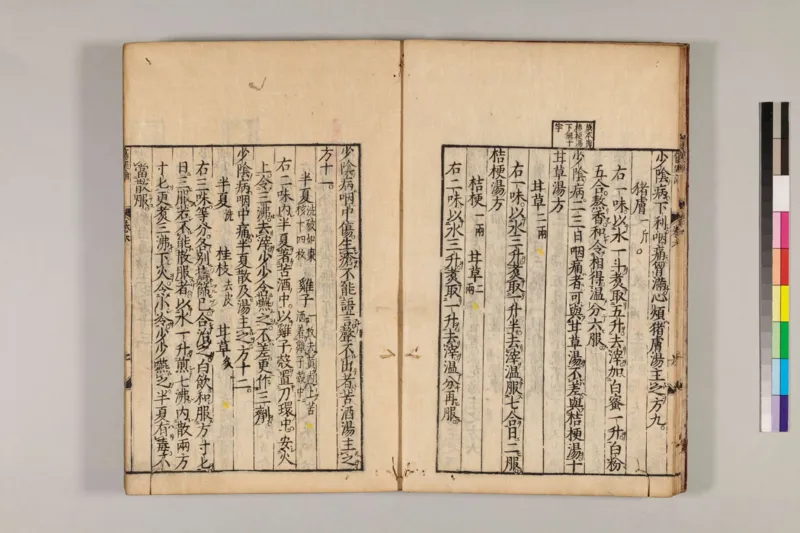 少陰病下利咽痛胷滿心煩猪膚湯主之方九
猪膚一斤
右一味以水一斗煑取五升去滓加白蜜一升白粉
五合熬香和令相得温分六服
少陰病二三日咽痛者可與甘草湯不差與桔梗湯十
甘草湯方
甘草二兩
右一味以水三升煑取一升半去滓温服七合日二服
桔梗湯方
桔梗一兩 甘草二兩
右二味以水三升煑取一升去滓温分再服
少陰病咽中傷生瘡不能語言聲不出者苦酒湯主之
方十一
半夏洗破如棗核十四枚 雞子一枚去黄内上苦酒着雞子殻中
右二味内半夏著苦酒中以雞子殻置刀環中安火
上令三沸去滓少少含嚥之不差更作三劑
少陰病咽中痛半夏散及湯主之方十二
半夏洗 桂枝去皮 甘草炙
右三味等分各别擣篩已合治之白飲和服方寸匕
日三服若不能散服者以水一升煎七沸内散兩方
寸匕更煑三沸下火令小冷少少嚥之半夏有毒不
當散服